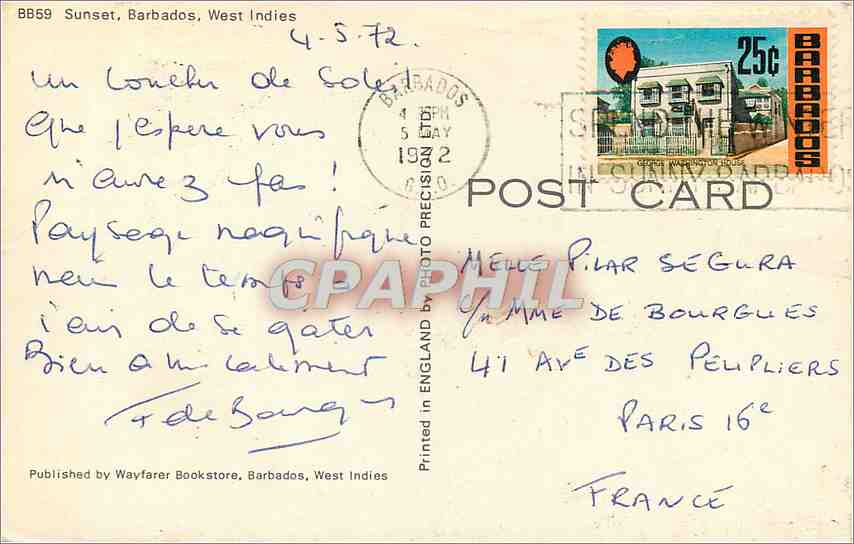 BB59 Sunset, Barbados, West Indies
4-5-72.
un coucher de Soleil
que j'espere vous
n'aurez pas !
Paysage magnifique
mais le temps a
l'air de se gater
Bien amicalement
F de Bourgues
Published by Wayfarer Bookstore, Barbados, West Indies
Printed in ENGLAND by PHOTO PRECISION LTD.
CPAPHIL
BARBADOS
4 PM
5 MAY
1972
G.P.O.
25¢
BARBADOS
GEORGE WASHINGTON HOUSE
SPEND THE WINTER
IN SUNNY BARBADOS
POST CARD
MELLE PILAR SEGURA
c/o MME DE BOURGUES
41 AVE DES PEUPLIERS
PARIS 16e
FRANCE